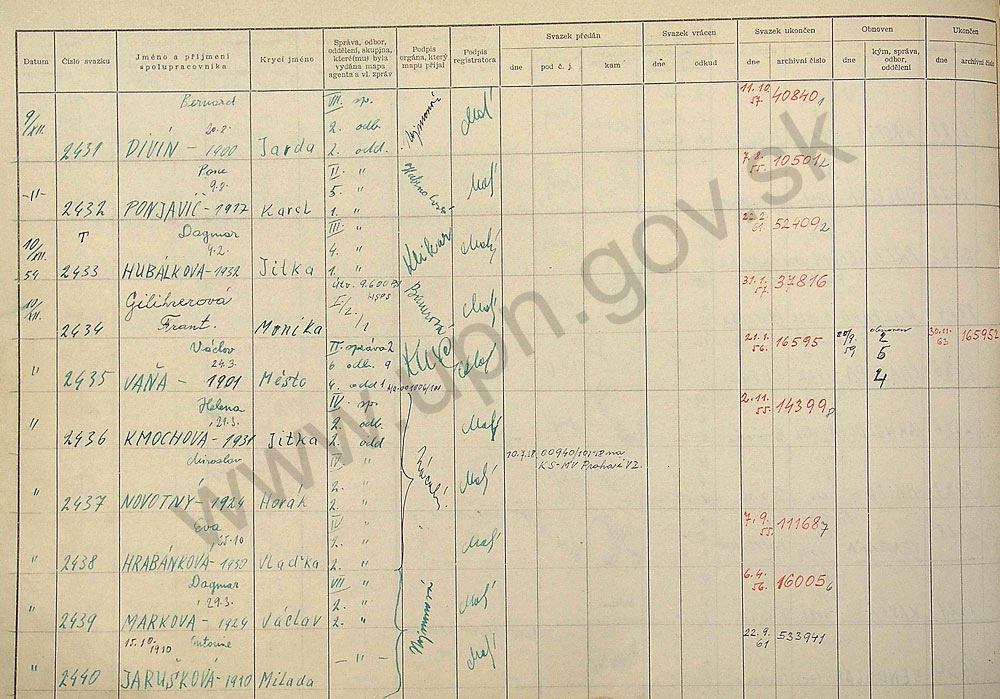 Datum
Číslo svazku
Jméno a příjmení
spolupracovníka
Krycí jméno
Správa, odbor,
oddělení, skupina,
které(mu) byla
vydána mapa
agenta a vl. zpráv
Podpis
orgána, který
mapu přijal
Podpis
registratora
Svazek předán
dne
pod č. j.
kam
Svazek vrácen
dne
odkud
Svazek ukončen
dne
archivní číslo
Obnoven
dne
kým, správa,
odbor,
oddělení
Ukončen
dne
archivní číslo
9/XII. 2431 Bernard
20.2.
DIVÍN - 1900 Jarda III. sp.
2. odb.
2. odd. Malý 11.10.
57. 40840/1
-11- 2432
9.8.
PONJAVIČ - 1917 Karel II. "
5. "
1. " Malý 7.8.
55. 10501/2
10/XII.
54 T
2433 Dagmar
4.2.
HUBÁLKOVÁ - 1932 Jitka III. "
4. "
1. " Malý
61. 52409/2
10/XII. 2434 Gilihrerová
Frant. Monika
I/2.
/1 Malý 31.1.
57. 37816
" 2435 Václav
24.3.
VAŇA - 1901 Město II. správa 2
6 odb. 9
4. odd 1 Malý 21.1.
56. 16595 59 obnoven
2
5
4 30.11.
63 165952
" 2436 Helena
21.3.
KMOCHOVÁ - 1931 Jitka IV. sp.
2. odb.
2. odd Malý 2.11.
55. 14399/8
" 2437 Miroslav
NOVOTNÝ - 1924 Horák IV "
2. "
2. " Malý 10.7.58. 00940/101-18 na
KS-MV Praha
" 2438 Eva
25.10
HRABÁNKOVÁ - 1930 Vlaďka IV "
2. "
2. " Malý 7.9.
55. 11168/7
" 2439 Dagmar
29.3.
MARKOVÁ - 1924 Václav VII "
2. "
2. " Malý 6.4.
56. 16005/6
" 2440 15.10.
1910
JARUŠKOVÁ - 1910 Milada - " - Malý 22.9.
61 533941
www.upn.gov.sk